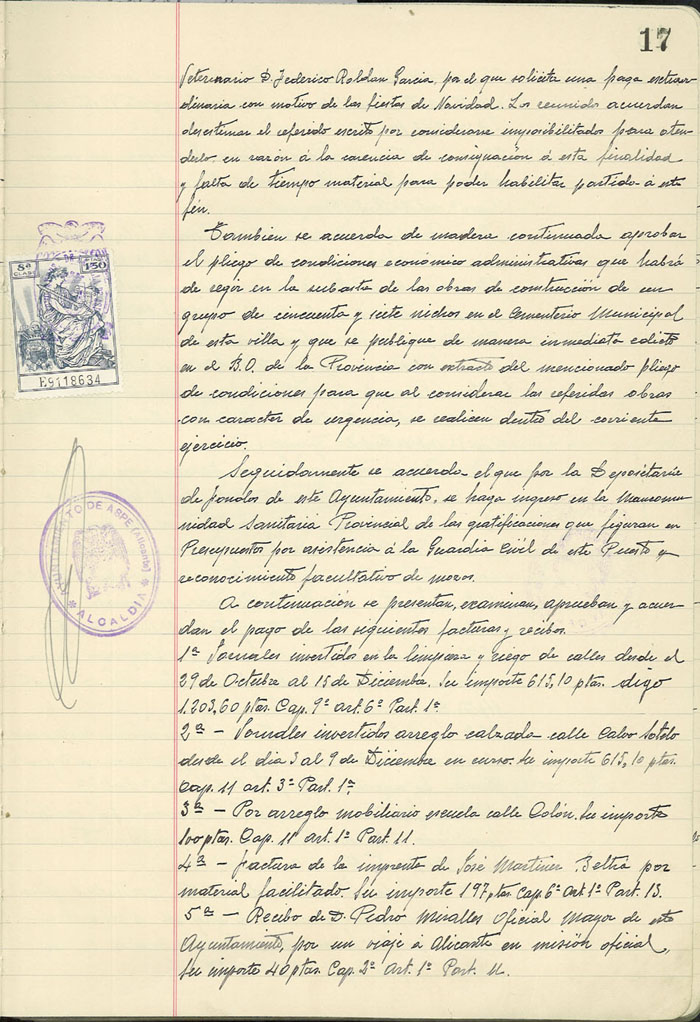 17
Veterinario D. Federico Roldan Garcia, por el que solicita una paga extraor-
dinaria con motivo de las fiestas de Navidad. Los reunidos acuerdan
desestimar el referido escrito por considerarse imposibilitados para aten-
derlo en razón á la carencia de consignación á esta finalidad
y falta de tiempo material para poder habilitar partida á este
fin.
Tambien se acuerda de madera continuada aprobar
el pliego de condiciones económico administrativas que habrá
de regir en la subasta de las obras de construcción de un
grupo de cincuenta y siete nichos en el Cementerio Municipal
de esta villa y que se publique de manera inmediata edicto
en el B.O. de la Provincia con extracto del mencionado pliego
de condiciones para que al considerar las referidas obras
con caracter de urgencia, se realicen dentro del corriente
ejercicio.
Seguidamente se acuerda el que por la Depositaria
de fondos de este Ayuntamiento, se haga ingreso en la Mancomu-
nidad Sanitaria Provincial de las gratificaciones que figuran en
Presupuestos por asistencia á la Guardia Civil de este Puesto y
reconocimiento facultativo de mozos.
A continuación se presentan, examinan, aprueban y acuer-
dan el pago de las siguientes facturas y recibos.
1ª Jornales invertidos en la limpieza y riego de calles desde el
29 de Octubre al 15 de Diciembre. Su importe 615,10 ptas. digo
1.203,60 ptas. Cap. 9º art. 6º Part. 1ª
2ª – Jornales invertidos arreglo calzada calle Calvo Sotelo
desde el dia 3 al 9 de Diciembre en curso. Su importe 615,10 ptas.
Cap. 11 art. 3º Part. 1ª.
3ª – Por arreglo mobiliario escuela calle Colón. Su importe
100 ptas. Cap. 11 art. 1º Part. 11.
4ª – Factura de la imprenta de José Martinez Beltrá por
material facilitado. Su importe 197 ptas. Cap. 6º Art. 1º Part. 13.
5ª – Recibo de D. Pedro Miralles Oficial Mayor de este
Ayuntamiento, por un viaje á Alicante en misión oficial,
Su importe 40 ptas. Cap. 2º Art. 1º Part. 11.
8ª CLASE
1'50
E9118634
AYUNTAMIENTO DE ASPE (Alicante)
* ALCALDIA *